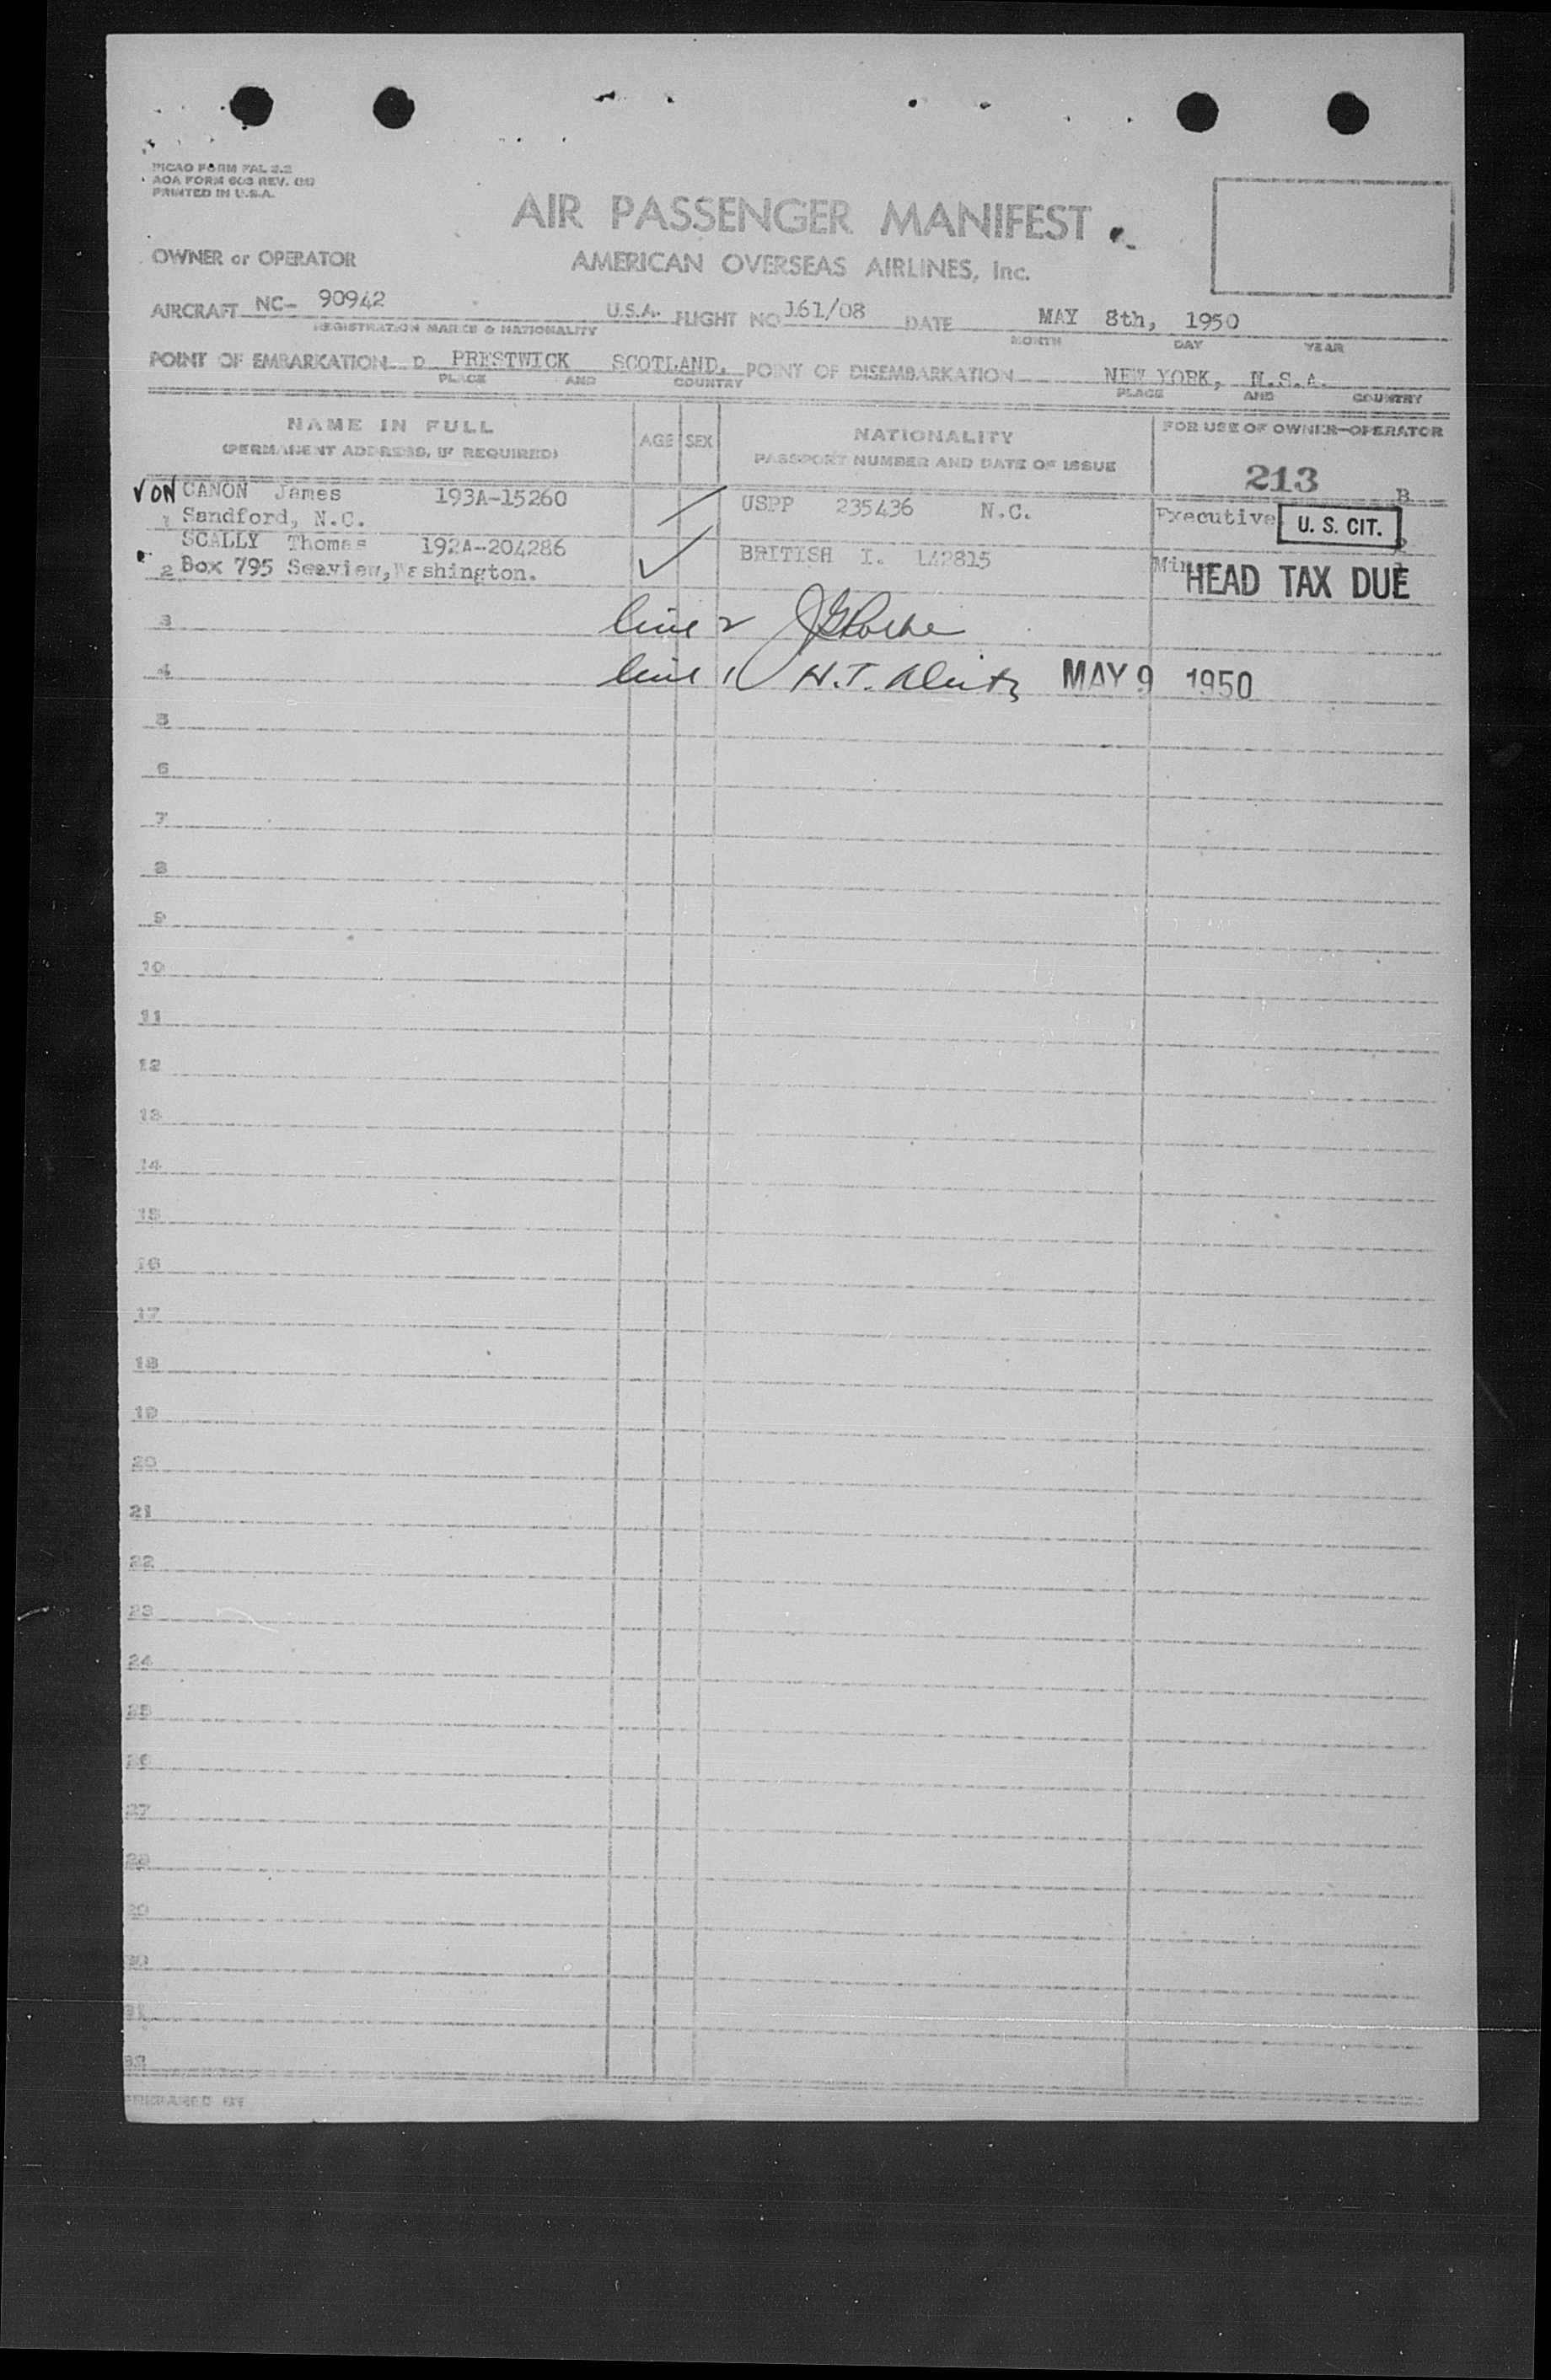 PICAO FORM FAL 2.2
AOA FORM 603 REV.
PRINTED IN U.S.A.
AIR PASSENGER MANIFEST
OWNER or OPERATOR AMERICAN OVERSEAS AIRLINES, Inc.
AIRCRAFT NC- 90942 U.S.A. FLIGHT NO 161/08 DATE MAY 8th, 1950
REGISTRATION MARKS & NATIONALITY MONTH DAY YEAR
POINT OF EMBARKATION D PRESTWICK SCOTLAND. POINT OF DISEMBARKATION NEW YORK, N.S.A.
PLACE AND COUNTRY PLACE AND COUNTRY
NAME IN FULL AGE SEX NATIONALITY FOR USE OF OWNER-OPERATOR
(PERMANENT ADDRESS, IF REQUIRED) PASSPORT NUMBER AND DATE OF ISSUE
213
VON CANON James 193A-15260 USPP 235436 N.C. B
1 Sandford, N.C. Executive U. S. CIT.
SCALLY Thomas 192A-204286 BRITISH I. 142815
2 Box 795 Seaview, Washington. HEAD TAX DUE
3 line 2
4 line 1 H.T. MAY 9 1950
5
6
7
8
9
10
11
12
13
14
15
16
17
18
19
20
21
22
23
24
25
26
27
28
29
30
31
32
PREPARED BY